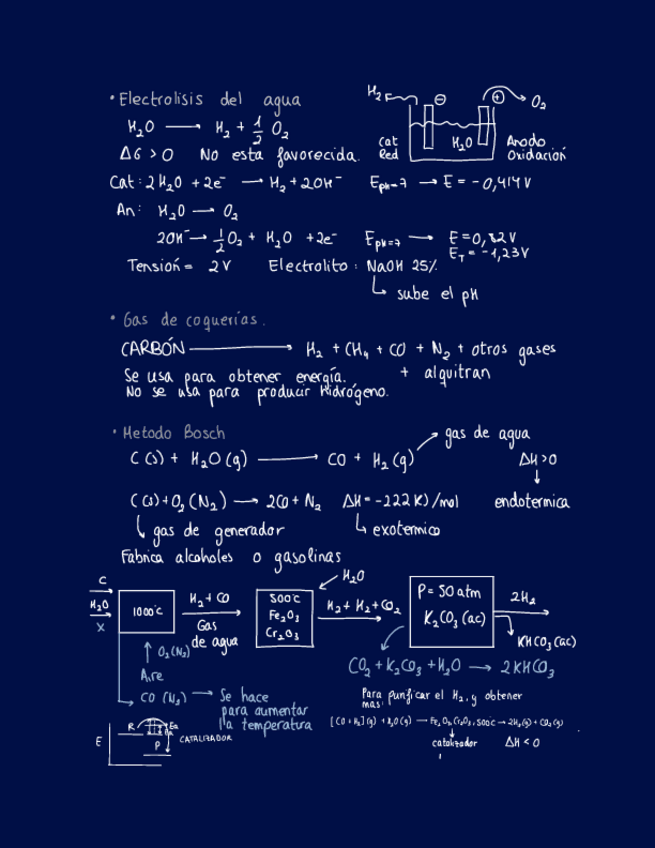 • Electrolisis del agua
H₂O → H₂ + 1/2 O₂
ΔG > 0 No esta favorecida.
H₂ ⊖ ⊕ O₂
Cat Red H₂O Anodo Oxidación
Cat: 2H₂O + 2e⁻ → H₂ + 2OH⁻ E pH=7 → E = -0,414 V
An: H₂O → O₂
2OH⁻ → 1/2 O₂ + H₂O + 2e⁻ E pH=7 → E = 0,82 V
E_T = -1,23V
Tensión = 2V Electrolito: NaOH 25%
↳ sube el pH
• Gas de coquerías.
CARBÓN → H₂ + CH₄ + CO + N₂ + otros gases
+ alquitran
Se usa para obtener energía.
No se usa para producir Hidrógeno.
• Metodo Bosch
gas de agua
C (s) + H₂O (g) → CO + H₂ (g) ΔH>0
↓
C(s) + O₂ (N₂) → 2CO + N₂ ΔH = -222 KJ/mol endotermica
↳ gas de generador ↳ exotermica
Fabrica alcoholes o gasolinas
C
H₂O
X
1000°C
H₂ + CO
Gas de agua
500°C
Fe₂O₃
Cr₂O₃
H₂O
H₂ + H₂ + CO₂
P = 50 atm
K₂CO₃ (ac)
2H₂
KHCO₃ (ac)
↑ O₂(N₂)
Aire
CO₂ + K₂CO₃ + H₂O → 2KHCO₃
CO (N₂) → Se hace
para aumentar
la temperatura
Para purificar el H₂, y obtener
mas.
[CO + H₂] (g) + H₂O (g) → Fe₂O₃, Cr₂O₃, 500°C → 2H₂(g) + CO₂ (g)
↓
catalizador ΔH < 0
E
R
Ea
P
CATALIZADOR